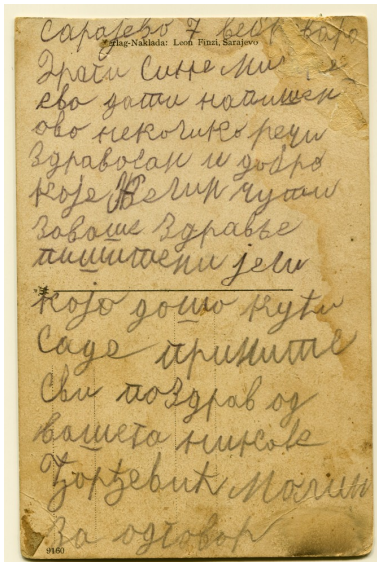 Сарајево 7
Verlag-Naklada: Leon Finzi, Sarajevo
Драги Сине Ми
ево дати напишем
ово неколико речи
Здравосам и добро
које Желим чути
Заваше Здравье
пишитени јели
који дошо кући
Саде примите
Сви поздрав од
вашега
Ђорђевић
За одговор
9160